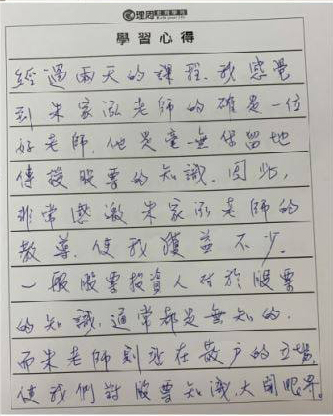 理周教育學苑
學習心得
經過兩天的課程,我感覺
到朱家泓老師的確是一位
好老師,他是毫無保留地
傳授股票的知識,因此,
非常感激朱家泓老師的
教導,使我獲益不少。
一般股票投資人对於股票
的知識,通常都是無知的,
而朱老師則站在散户的立場,
使我們對股票知識,大開眼界。